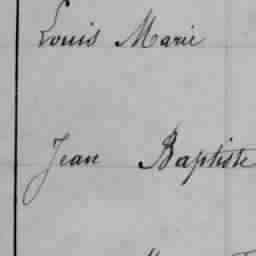 Louis Marie
Jean Baptiste